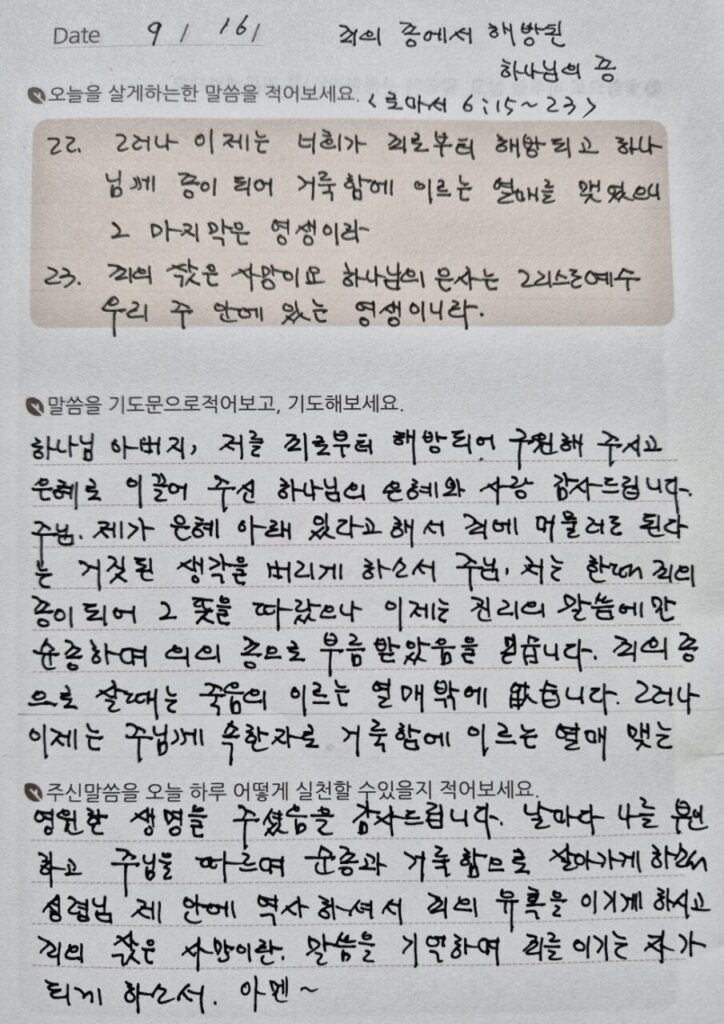 Date 9 / 16 / 죄의 종에서 해방된
하나님의 종
오늘을 살게하는한 말씀을 적어보세요. <로마서 6:15~23>
22. 그러나 이제는 너희가 죄로부터 해방되고 하나
님께 종이 되어 거룩함에 이르는 열매를 맺었으니
그 마지막은 영생이라
23. 죄의 삯은 사망이요 하나님의 은사는 그리스도예수
우리 주 안에 있는 영생이니라.
말씀을 기도문으로적어보고, 기도해보세요.
하나님 아버지, 저를 죄로부터 해방되어 구원해 주시고
은혜로 이끌어 주신 하나님의 은혜와 사랑 감사드립니다.
주님. 제가 은혜 아래 있다고해서 죄에 머물러도 된다
는 거짓된 생각을 버리게 하소서 주님, 저는 한때 죄의
종이되어 그 뜻을 따랐으나 이제는 진리의 말씀에만
순종하며 의의 종으로 부름받았음을 믿습니다. 죄의종
으로 살때는 죽음의 이르는 열매밖에 없습니다. 그러나
이제는 주님께 속한자로 거룩함에 이르는 열매 맺는
주신말씀을 오늘 하루 어떻게 실천할 수있을지 적어보세요.
영원한 생명을 주셨음을 감사드립니다. 날마다 나를 부인
하고 주님을 따르며 순종과 거룩함으로 살아가게 하소서
성령님 제 안에 역사하셔서 죄의 유혹을 이기게 하시고
죄의 삯은 사망이란. 말씀을 기억하며 죄를 이기는 자가
되게 하소서. 아멘~